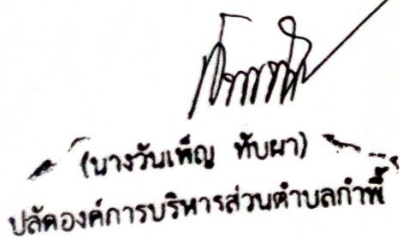 (นางวันเพ็ญ ทับผา)
ปลัดองค์การบริหารส่วนตำบลกำพี้